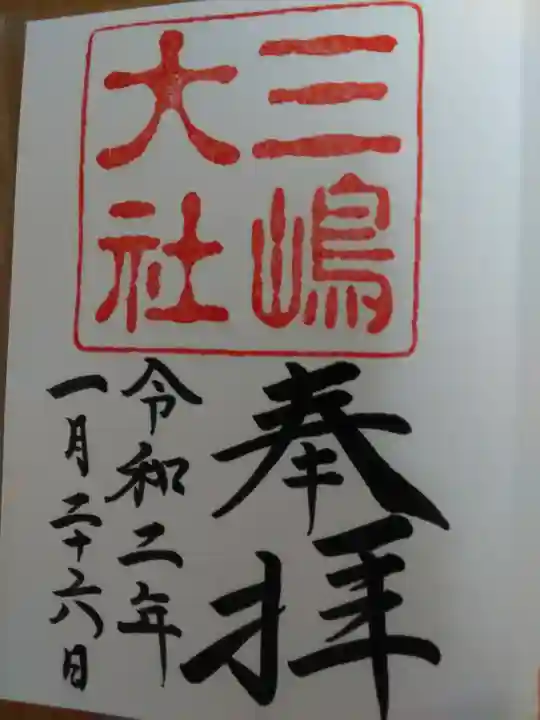 三嶋
大社
奉拝
令和二年
一月二十六日